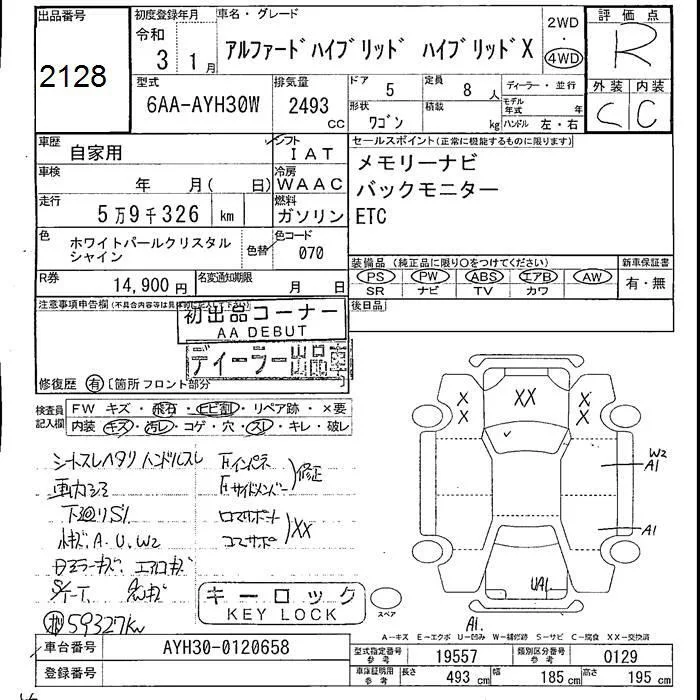 出品番号
2128
初度登録年月
令和
3 1月
車名・グレード
アルファードハイブリッド ハイブリッドX
2WD
・
4WD
評価点
R
外装 内装
C C
型式
6AA-AYH30W
排気量
2493
CC
ドア 5
定員 8人
形状 ワゴン
積載 kg
ディーラー・並行
モデル年式 年
ハンドル 左・右
車歴
自家用
シフト
IAT
車検
年 月( 日)
冷房
WAAC
走行
5万9千326 km
燃料
ガソリン
色
ホワイトパールクリスタル
シャイン
色替
色コード
070
R券
14,900円
名変通知期限
月 日
セールスポイント(正常に機能するものに限ります)
メモリーナビ
バックモニター
ETC
装備品 (純正品に限り○をつけてください)
PS PW ABS エアB AW
SR ナビ TV カワ
新車保証書
有・無
後日品
注意事項申告欄
初出品コーナー
AA DEBUT
ディーラー出品車
修復歴 有 [箇所 フロント部分
検査員
記入欄
FW キズ・飛石・ヒビ割・リペア跡・×要
内装・キズ・汚レ・コゲ・穴・スレ・キレ・破レ
シートスレヘタリ ハンドルスレ
下廻りS
A. U. W2
59327km
インパネ
サイドメンバー
修正
XX
キーロック
KEY LOCK
スペア
XX
X
X
X
X
W2
A1
A1
UA1
A1.
A－キズ E－エクボ U－凹み W－補修跡 S－サビ C－腐食 XX－交換済
車台番号
AYH30-0120658
登録番号
型式指定番号
参考
19557
類別区分番号
参考
0129
車庫証明用
参考
長さ 493 cm
幅 185 cm
高さ 195 cm